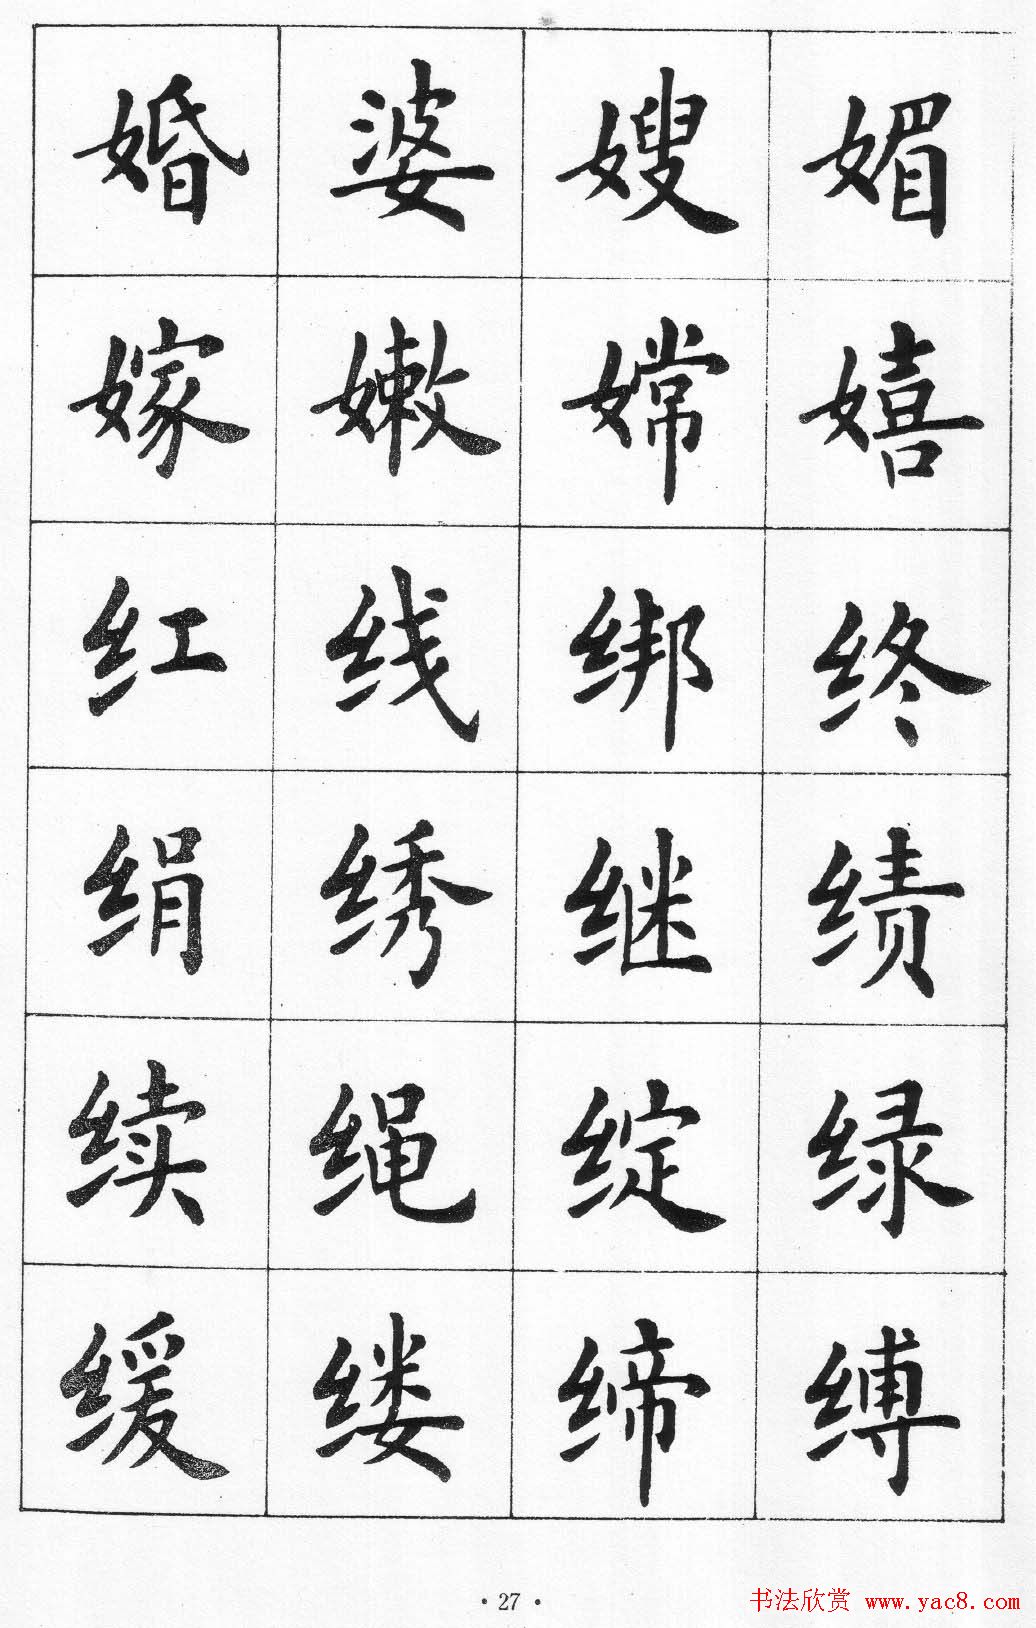 婚 婆 嫂 媚
嫁 嫩 嫦 嬉
红 线 绑 终
绢 绣 继 绩
续 绳 绽 绿
缓 缕 缔 缚
· 27 ·
书法欣赏 www.yac8.com